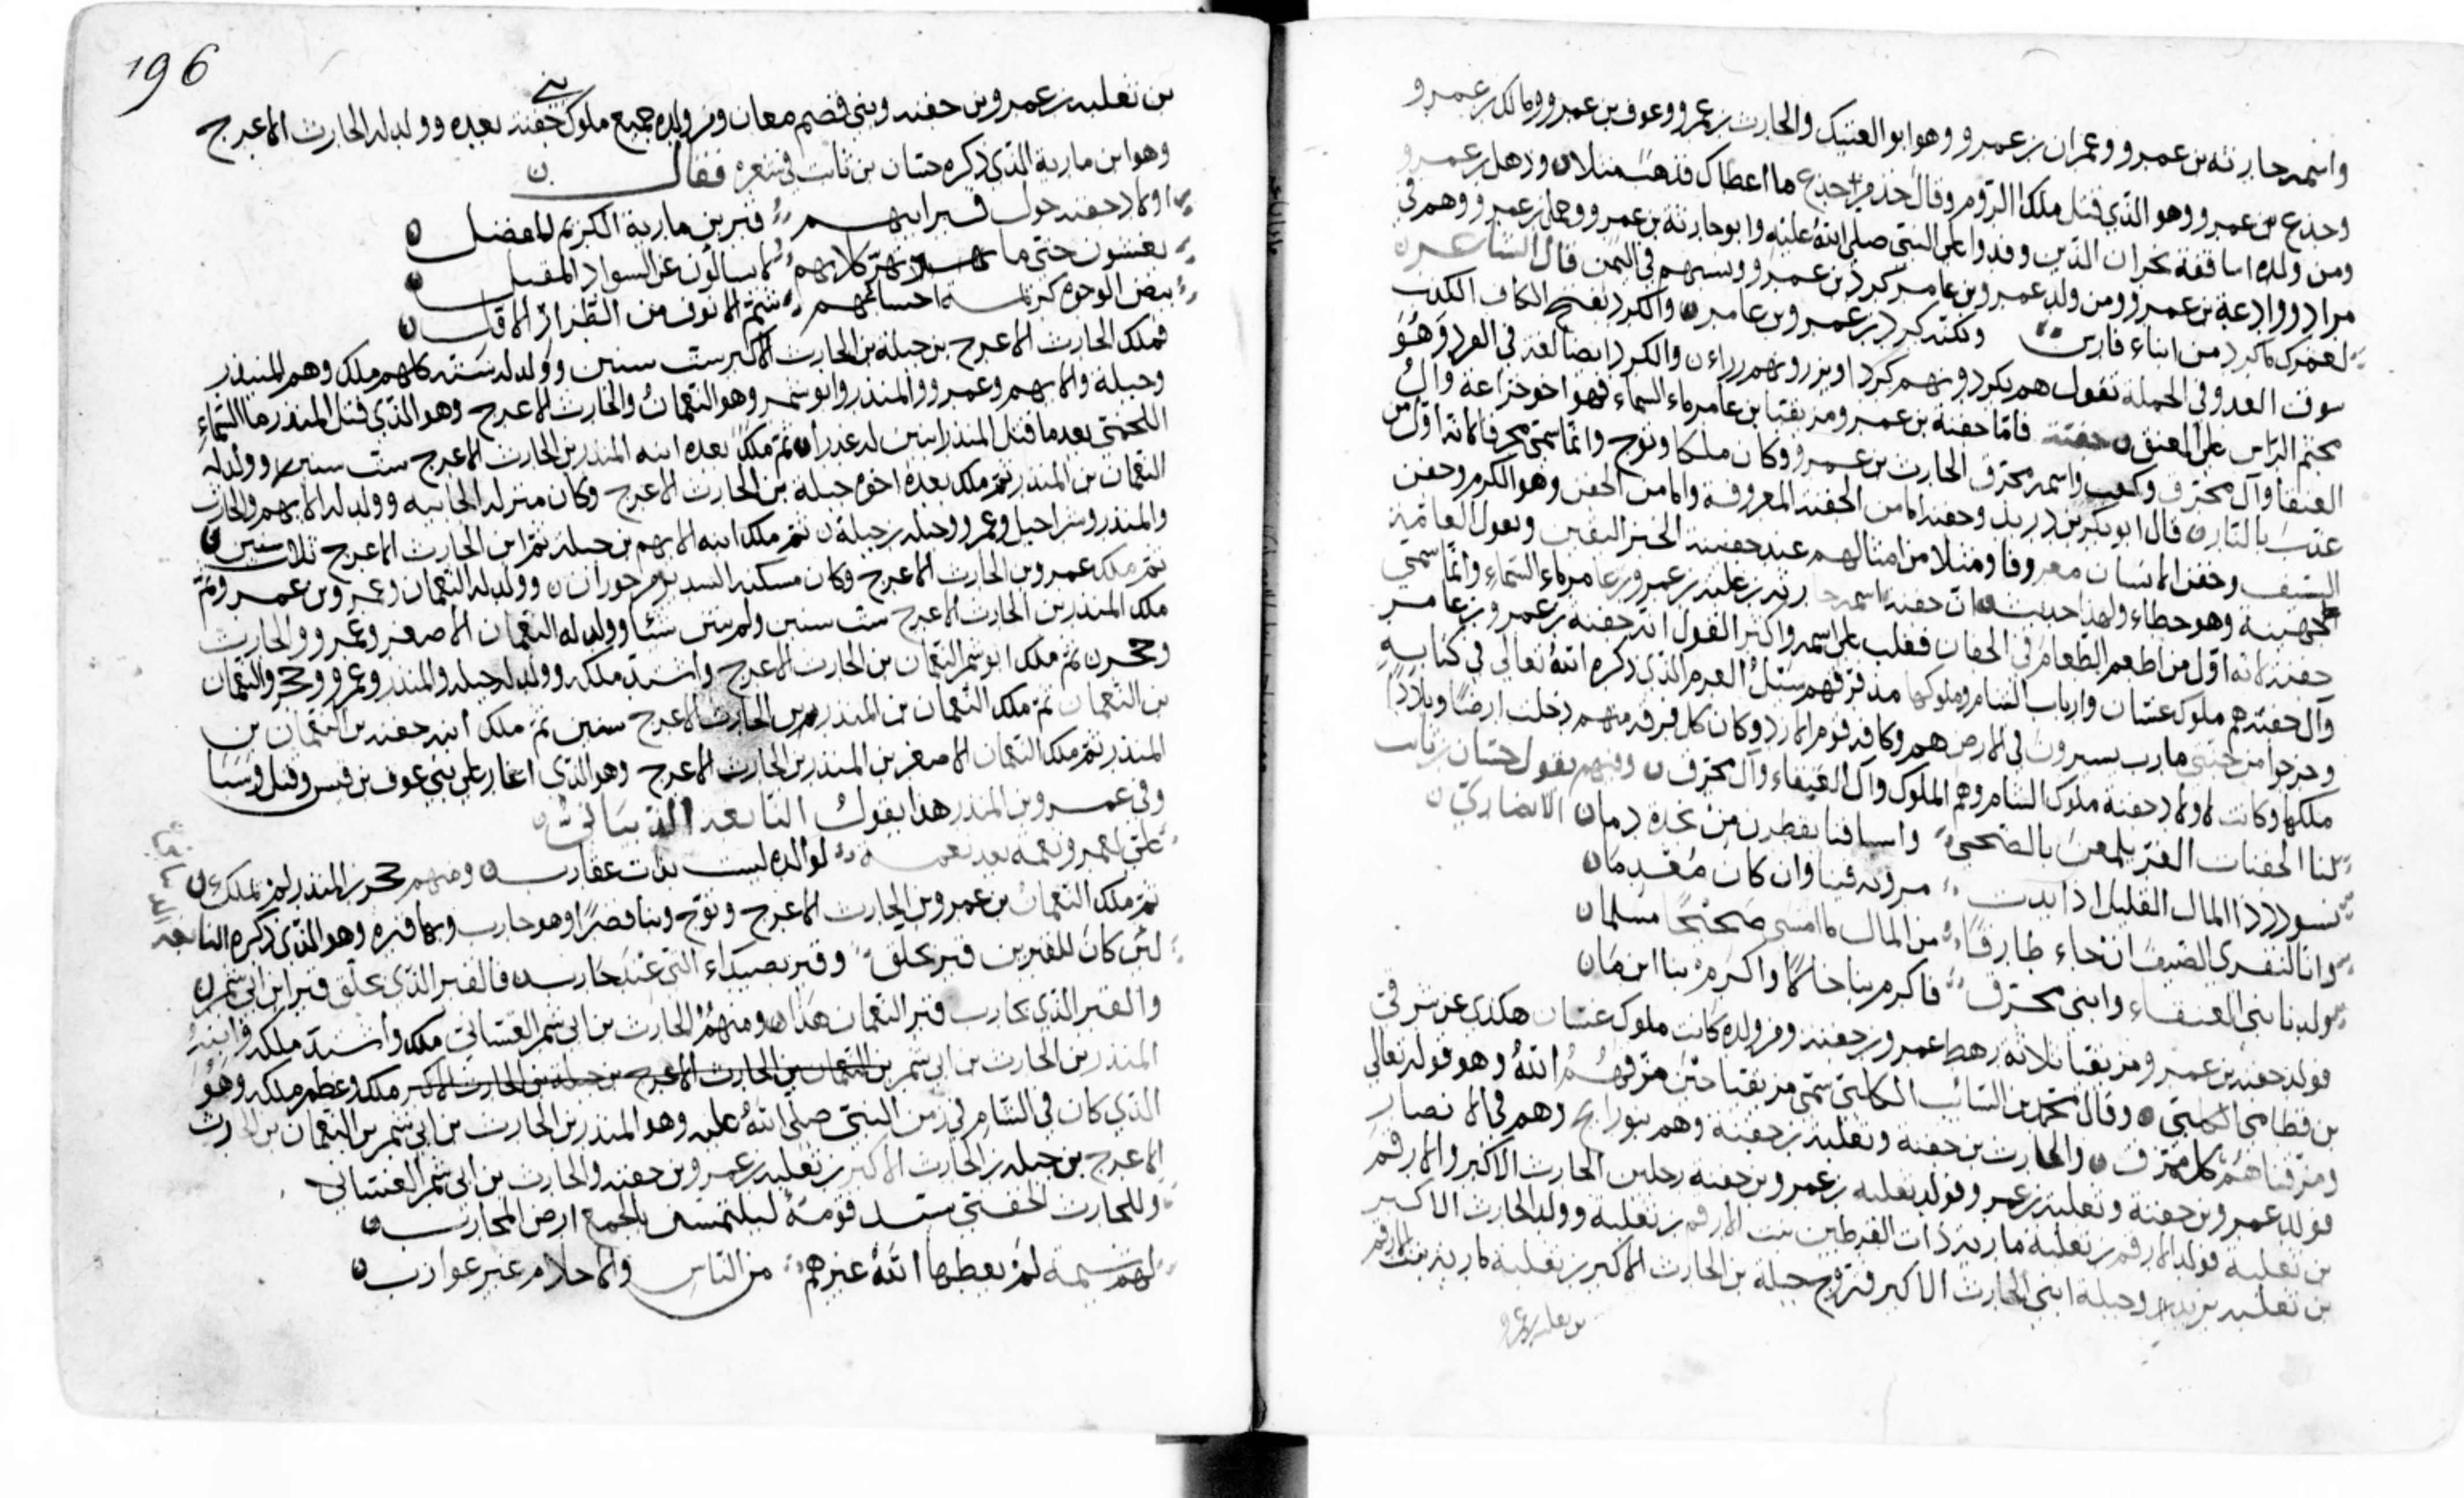 واسمه حارثة بن عمرو وعمران بن عمرو وهو ابو العتيك والحارث بن عمرو وعوف بن عمرو ومالك بن عمرو
وجذع بن عمرو وهو الذي قتل ملك الروم وقال خذ من جذع ما اعطاك فذهبت مثلا ن وذهل بن عمرو
ومن ولده اساقفة نجران الذين وفدوا على النبي صلى الله عليه وابو حارثة بن عمرو وهم في
مراد ووادعة بن عمرو ومن ولد عمرو بن عامر كرد بن عمرو ونسبهم في اليمن قال الشاعر ن
لعمرك ما كرد من ابناء فارس ولكنه كرد بن عمرو بن عامر ن والكرد بفتح الكاف
سوق العدو في الحملة تقول هم يكردونهم كردا والكرد ايضا لغة في القرد وهو
مجثم الراس على العنق ن فاما جفنة بن عمرو مزيقيا بن عامر ماء السماء فهو اخو خزاعة وال
العنقا وآل محرق وكعب واسمه محرق الحارث بن عمرو وكان ملكا وتوج وانما سمي محرقا لانه اول من
عذب بالنار ن قال ابو بكر بن دريد وجفنة اما من الجفنة المعروفة واما من الجفن وهو الكرم وجفن
السيف وجفن الانسان معروفا ومثلا من امثالهم عند جفينة الخبر اليقين وتقول العامة
جهينة وهو خطاء ولهذا حديث ن
جفنة لانه اول من اطعم الطعام في الجفان فغلب على اسمه واكثر القول انه جفنة بن عمرو بن عامر
وآل جفنة هم ملوك غسان وارباب الشام وملوكها مذ فرقهم سيل العرم الذي ذكره الله تعالى في كتابه
وخرجوا من جنتي مارب يسيرون في الارض هم وكافة قوم الازد وكان كل فرقة منهم دخلت ارضا وبلادا
ملكها وكانت لاولاد جفنة ملوك الشام وهم الملوك وآل العنقاء وآل محرق ن وفيهم يقول حسان بن ثابت
الانصاري ن
لنا الجفنات الغر يلمعن بالضحى واسيافنا يقطرن من نجدة دما ن
نسود ذا المال القليل اذا بدت مروته فينا وان كان معدما ن
وانا لنقري الضيف ان جاء طارقا من المال ما امسى صحيحا مسلما ن
ولدنا بني العنقاء وابني محرق فاكرم بنا خالا واكرم بنا ابنما ن
فولد جفنة بن عمرو مزيقيا ثلاثة رهط عمرو بن جفنة ومن ولده كانت ملوك غسان هكذى عن شرقي
بن قطامي الكلبي ن وقال محمد بن السائب الكلبي سمي مزيقيا حين مزقهم الله وهو قوله تعالى
ومزقناهم كل ممزق ن والحارث بن جفنة وثعلبة بن جفنة وهم في الانصار
فولد عمرو بن جفنة وثعلبة بن عمرو فولد ثعلبة بن عمرو بن جفنة رجلين الحارث الاكبر والارقم
بن ثعلبة فولد الارقم بن ثعلبة مارية ذات القرطين بنت الارقم بن ثعلبة وولد الحارث الاكبر
بن ثعلبة وجبلة ابني الحارث الاكبر فتزوج جبلة بن الحارث الاكبر بن ثعلبة مارية بنت الارقم
بن ثعلبة بن عمرو
196
بن ثعلبة بن عمرو بن جفنة وبنى قصر معان ومن ولده جميع ملوك بني جفنة بعده وولد له الحارث الاعرج
وهو ابن مارية الذي ذكره حسان بن ثابت في شعره فقال ن
اولاد جفنة حول قبر ابيهم قبر بن مارية الكريم المفضل ن
يغشون حتى ما تهر كلابهم لا يسالون عن السواد المقبل ن
بيض الوجوه كريمة احسابهم شم الانوف من الطراز الاول ن
فملك الحارث الاعرج بن جبلة بن الحارث الاكبر ست سنين وولد له ستة كلهم ملك وهم المنذر
وجبلة والايهم وعمرو والمنذر وابو شمر وهو النعمان والحارث الاعرج وهو الذي قتل المنذر ما السماء
اللخمي بعد ما قتل المنذر ن ثم ملك بعده ابنه المنذر بن الحارث الاعرج ست سنين وولد له
النعمان بن المنذر ثم ملك بعده اخوه جبلة بن الحارث الاعرج وكان منزله الجابية وولد له الايهم والحارث
والمنذر وشراحيل وعمرو وجبلة بن جبلة ن ثم ملك ابنه الايهم بن جبلة بن الحارث الاعرج ثلاث سنين ن
ثم ملك عمرو بن الحارث الاعرج وكان مسكنه حوران ن وولد له النعمان وعمرو بن عمرو ثم
ملك المنذر بن الحارث الاعرج ست سنين ولم يبن شيئا وولد له النعمان الاصغر وعمرو والحارث
وحجر ن ثم ملك ابو شمر النعمان بن الحارث الاعرج واشتد ملكه وولد له جبلة والمنذر وعمرو وحجر والنعمان
بن النعمان ثم ملك النعمان بن المنذر بن الحارث الاعرج سنين ثم ملك ابنه جفنة بن النعمان بن
المنذر ثم ملك النعمان الاصغر بن المنذر بن الحارث الاعرج وهو الذي اغار على بني عوف بن قيس وقتل وسبا
وفي عمرو بن المنذر هذا يقول النابغة الذبياني ن
علي لعمرو نعمة بعد نعمة لوالده ليست بذات عقارب ن ومنهم حجر بن المنذر لم يملك ن
ثم ملك النعمان بن عمرو بن الحارث الاعرج وتوج وبنا قصرا وهو حارب وبها قبره وهو الذي ذكره النابغة
لئن كان للقبرين قبر بجلق وقبر بصيداء التي عند حارب ن فالقبر الذي بجلق قبر ابن ابي شمر ن
والقبر الذي بحارب قبر النعمان هذا ن ومنهم الحارث بن ابي شمر الغساني ملك واشتد ملكه وابنه
المنذر بن الحارث بن ابي شمر بن النعمان بن الحارث الاعرج بن جبلة بن الحارث الاكبر ملك وعظم ملكه وهو
الذي كان في الشام في زمن النبي صلى الله عليه وهو المنذر بن الحارث بن ابي شمر بن النعمان بن الحارث
الاعرج بن جبلة بن الحارث الاكبر بن ثعلبة بن عمرو بن جفنة والحارث بن ابي شمر الغساني
وللحارث الجفني سيد قومه ليلتمسن بالجمع ارض المحارب ن
لهم شيمة لم يعطها الله غيرهم من الناس والاحلام غير عوازب ن